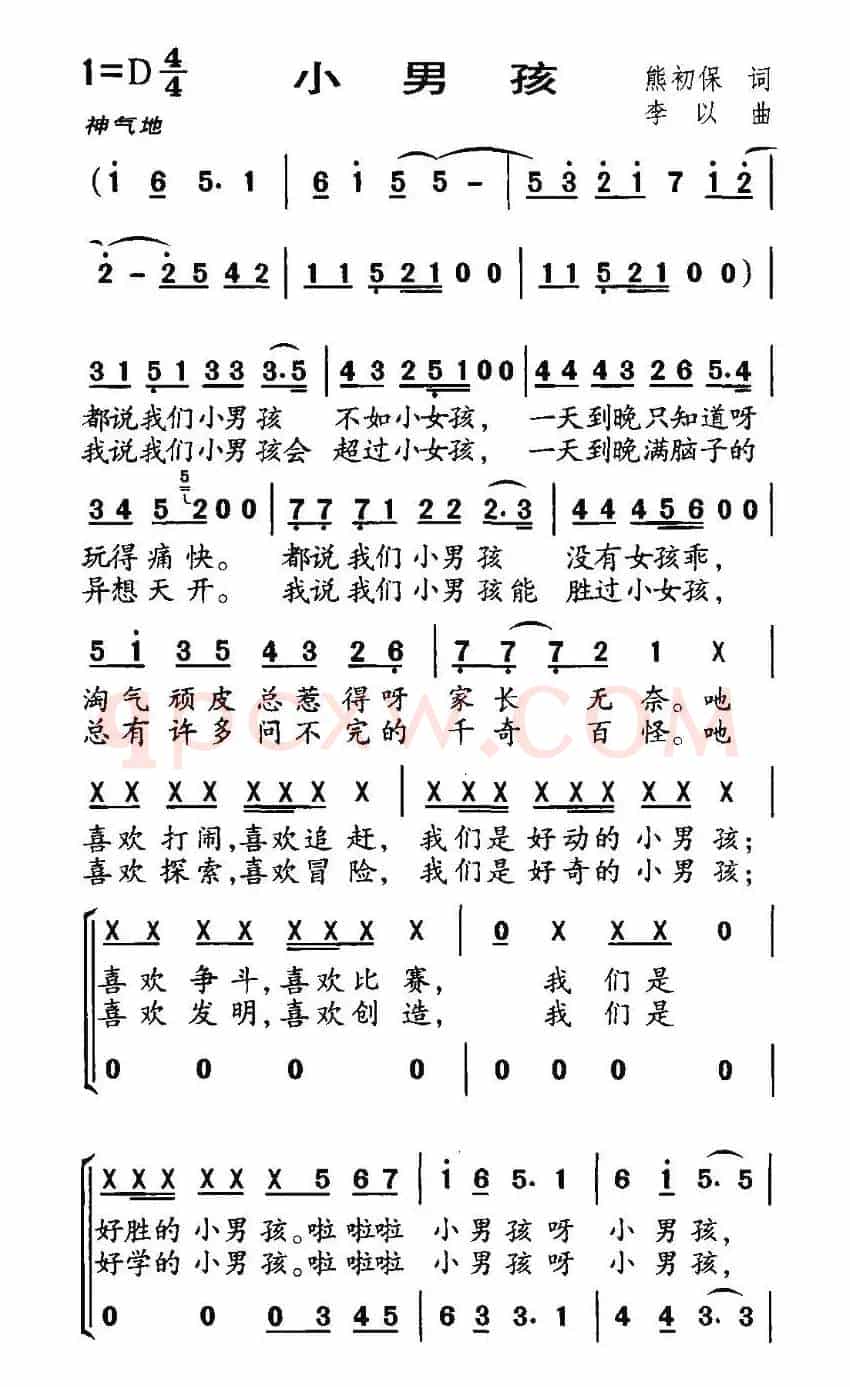 1=D 4/4 小男孩 熊初保 词
神气地 李以 曲
(i 6 5. 1 | 6 i 5 5 - | 5 3 2 i 7 i 2 |
2 - 2 5 4 2 | 1 1 5 2 1 0 0 | 1 1 5 2 1 0 0) |
3 1 5 1 3 3 3. 5 | 4 3 2 5 1 0 0 | 4 4 4 3 2 6 5. 4 |
都说我们小男孩 不如小女孩， 一天到晚只知道呀
我说我们小男孩会 超过小女孩， 一天到晚满脑子的
5
3 4 5 2 0 0 | 7 7 7 1 2 2 2. 3 | 4 4 4 5 6 0 0 |
玩得痛快。 都说我们小男孩 没有女孩乖，
异想天开。 我说我们小男孩能 胜过小女孩，
5 i 3 5 4 3 2 6 | 7 7 7 2 1 X |
淘气顽皮总惹得呀 家长无奈。吔
总有许多问不完的 千奇百怪。吔
qpcxw.com
X X X X X X X X | X X X X X X X X |
喜欢打闹，喜欢追赶， 我们是好动的小男孩；
喜欢探索，喜欢冒险， 我们是好奇的小男孩；
X X X X X X X X | 0 X X X 0 |
喜欢争斗，喜欢比赛， 我们是
喜欢发明，喜欢创造， 我们是
0 0 0 0 | 0 0 0 0 |
X X X X X X 5 6 7 | i 6 5. 1 | 6 i 5. 5 |
好胜的小男孩。啦啦啦 小男孩呀 小男孩，
好学的小男孩。啦啦啦 小男孩呀 小男孩，
0 0 0 3 4 5 | 6 3 3. 1 | 4 4 3. 3 |